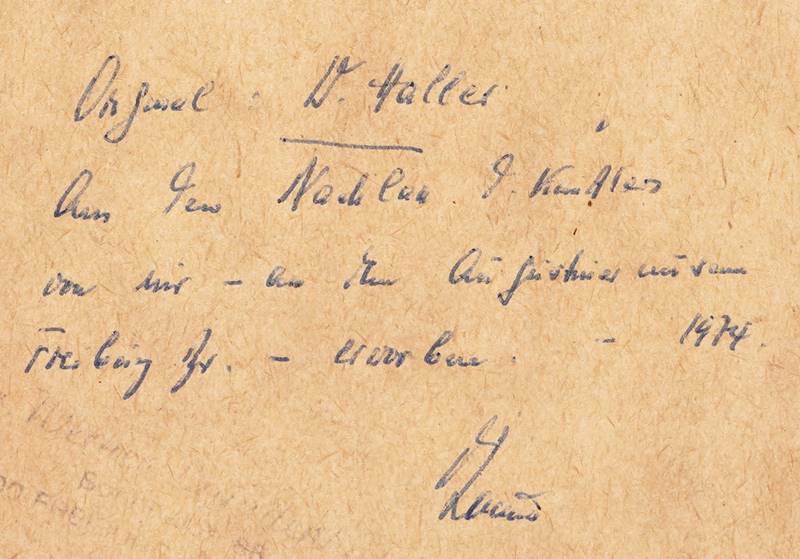 Original : W. Haller
Aus dem Nachlass d. Künstlers
von mir – an dem Augustinermuseum
Freiburg Br. – erworben. – 1974.